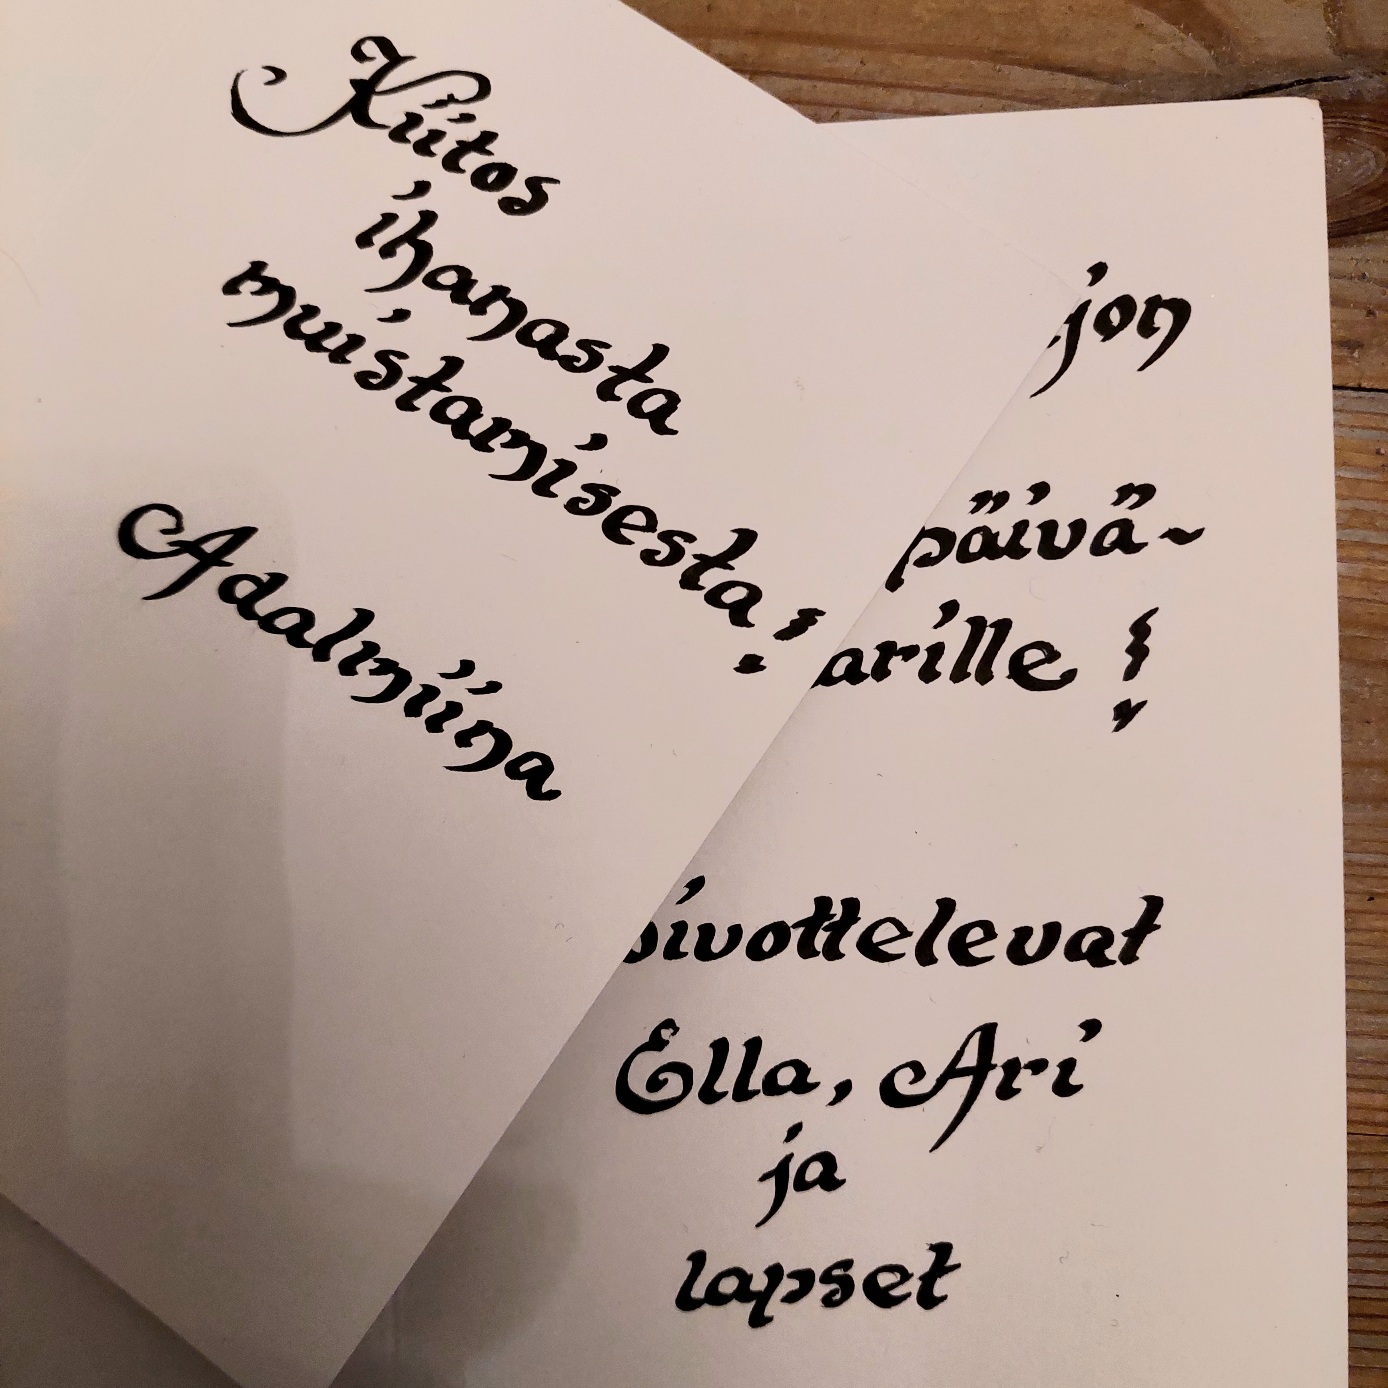 Kiitos
ihanasta
muistamisesta!
Adalmiina
päivä~
arille!
toivottelevat
Ella, Ari
ja
lapset